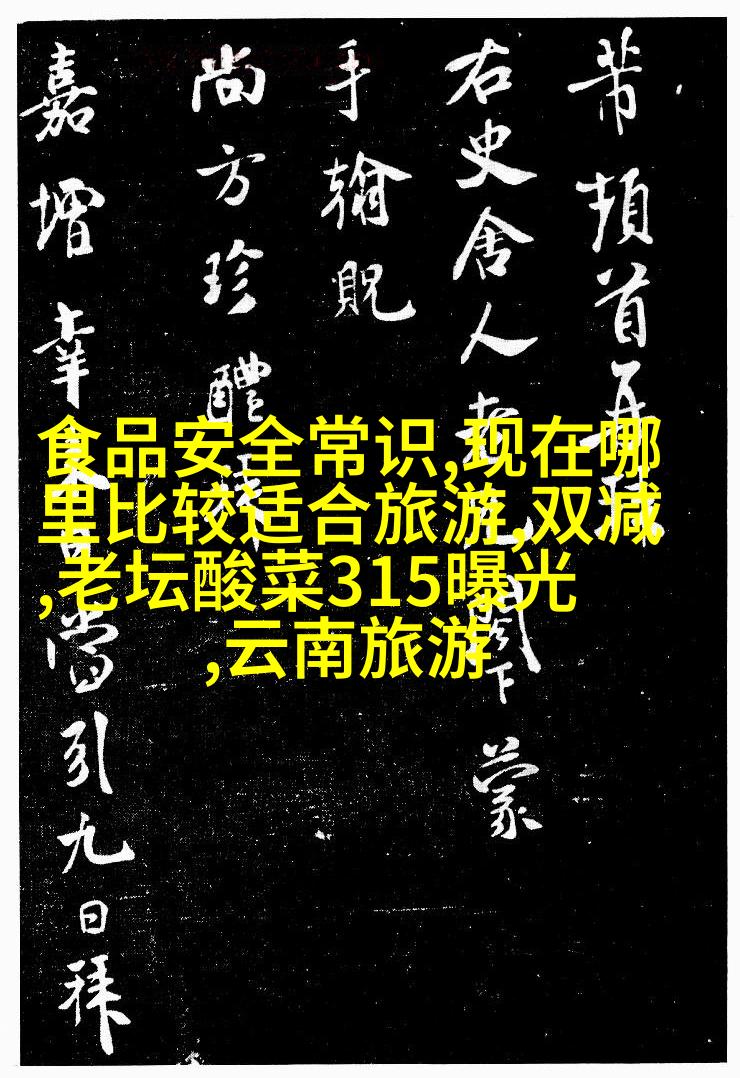 芾頓首再
右史舍人閣下蒙
手翰貺
尚方珍醴
嘉增幸當引九日拜
食品安全常识,现在哪
里比较适合旅游,双减
,老坛酸菜315曝光
,云南旅游